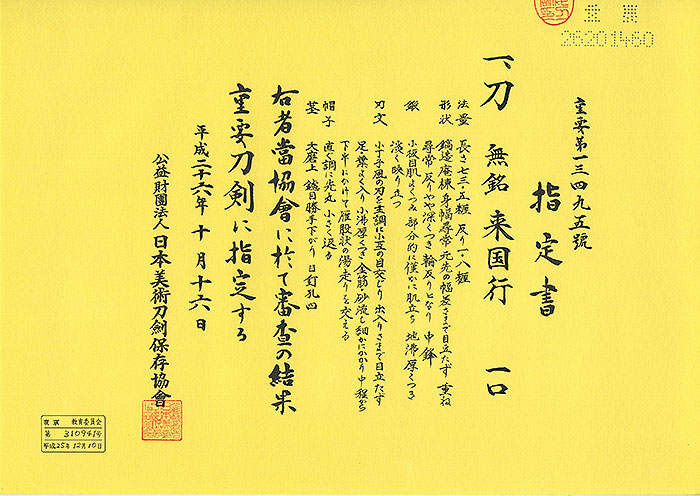 重要第一三四九五號
指定書
一、刀 無銘 来国行 一口
法量 長さ七三・五糎 反り一・八糎
形状 鎬造 庵棟 身幅尋常 元先の幅差さまで目立たず 重ね
尋常 反りやや深くつき 輪反りとなり 中鋒
鍛 小板目肌よくつみ 部分的に僅かに肌立ち 地沸厚くつき
淡く映り立つ
刃文 小丁子風の刃を主調に小互の目交じり 出入りさまで目立たず
足・葉よく入り 小沸厚くつき 金筋・砂流し細かにかかり 中程から
下半にかけて雁股状の湯走りを交える
帽子 直ぐ調に先丸く小さく返る
茎 大磨上 鑢目勝手下がり 目釘孔四
右者當協會に於て審査の結果
重要刀剣に指定する
平成二十六年十月十六日
公益財團法人 日本美術刀劍保存協會
重要
26201460
東京 教育委員会
第 310941号
平成25年12月10日